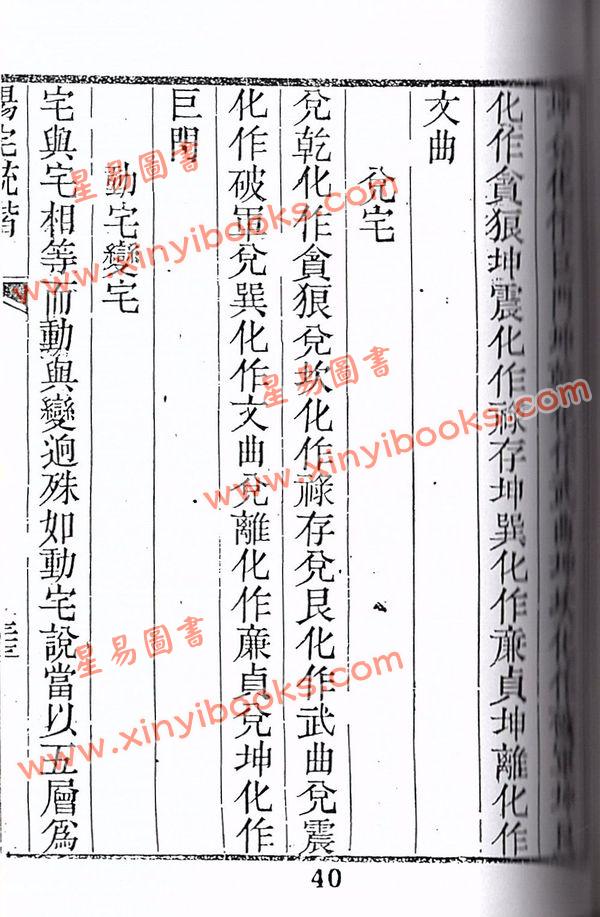 化作武曲坤坎化作
化作貪狼坤震化作祿存坤巽化作廉貞坤離化作
文曲
兌宅
兌乾化作貪狼兌坎化作祿存兌艮化作武曲兌震
化作破軍兌巽化作文曲兌離化作廉貞兌坤化作
巨門
動宅變宅
宅與宅相等而動與變逈殊如動宅說當以五層為
陽宅統
三三
40
星易圖書
www.xinyibooks.com
星易圖書
www.xinyibooks.com
星易圖書
www.xinyibooks.com